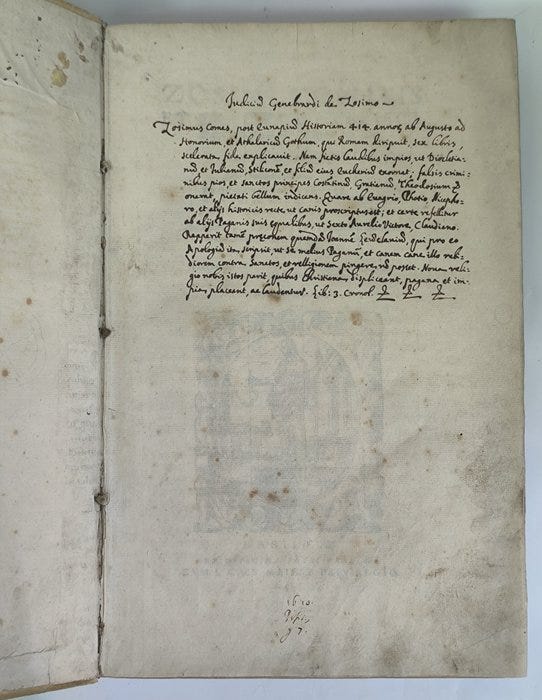 Judiciũ Genebrardi de Zosimo
Zosimus Comes, post Eunapiũ Historiam 414. annos, ab Augusto ad
Honorium, et Athalaricũ Gothum, qui Romam diripuit, sex libris,
scelerata fide explicavit. Nam fictis laudibus impios, ut Diocletia-
nũ et Julianũ, Stiliconẽ, et filiũ eius Eucheriũ exornat; falsis crimi-
nibus pios, et sanctos principes Cõstãtinũ, Gratianũ, Theodosium
onerat, pietati bellum indicens. Quare ab Evagrio, Photio, Nicepho-
ro, et alijs historicis recte, ut canis proscriptus est; et certe refellitur
ab alijs Paganis suis equalibus, ut Sexto Aurelio Victore, Claudiano.
Repperit tamẽ præconem quendã Joannẽ Leuclaviũ, qui pro eo
Apologiã ita scripsit ut se melius Paganũ, et canem cane illo rabi-
diorem contra Sanctos, et relligionem pingere nõ posset. Nova reli-
gio nobis istos parit, quibus Christiana displiceant, pagana et im-
pia placeant, ac laudentur. Lib: 3. Cronol.
1610.